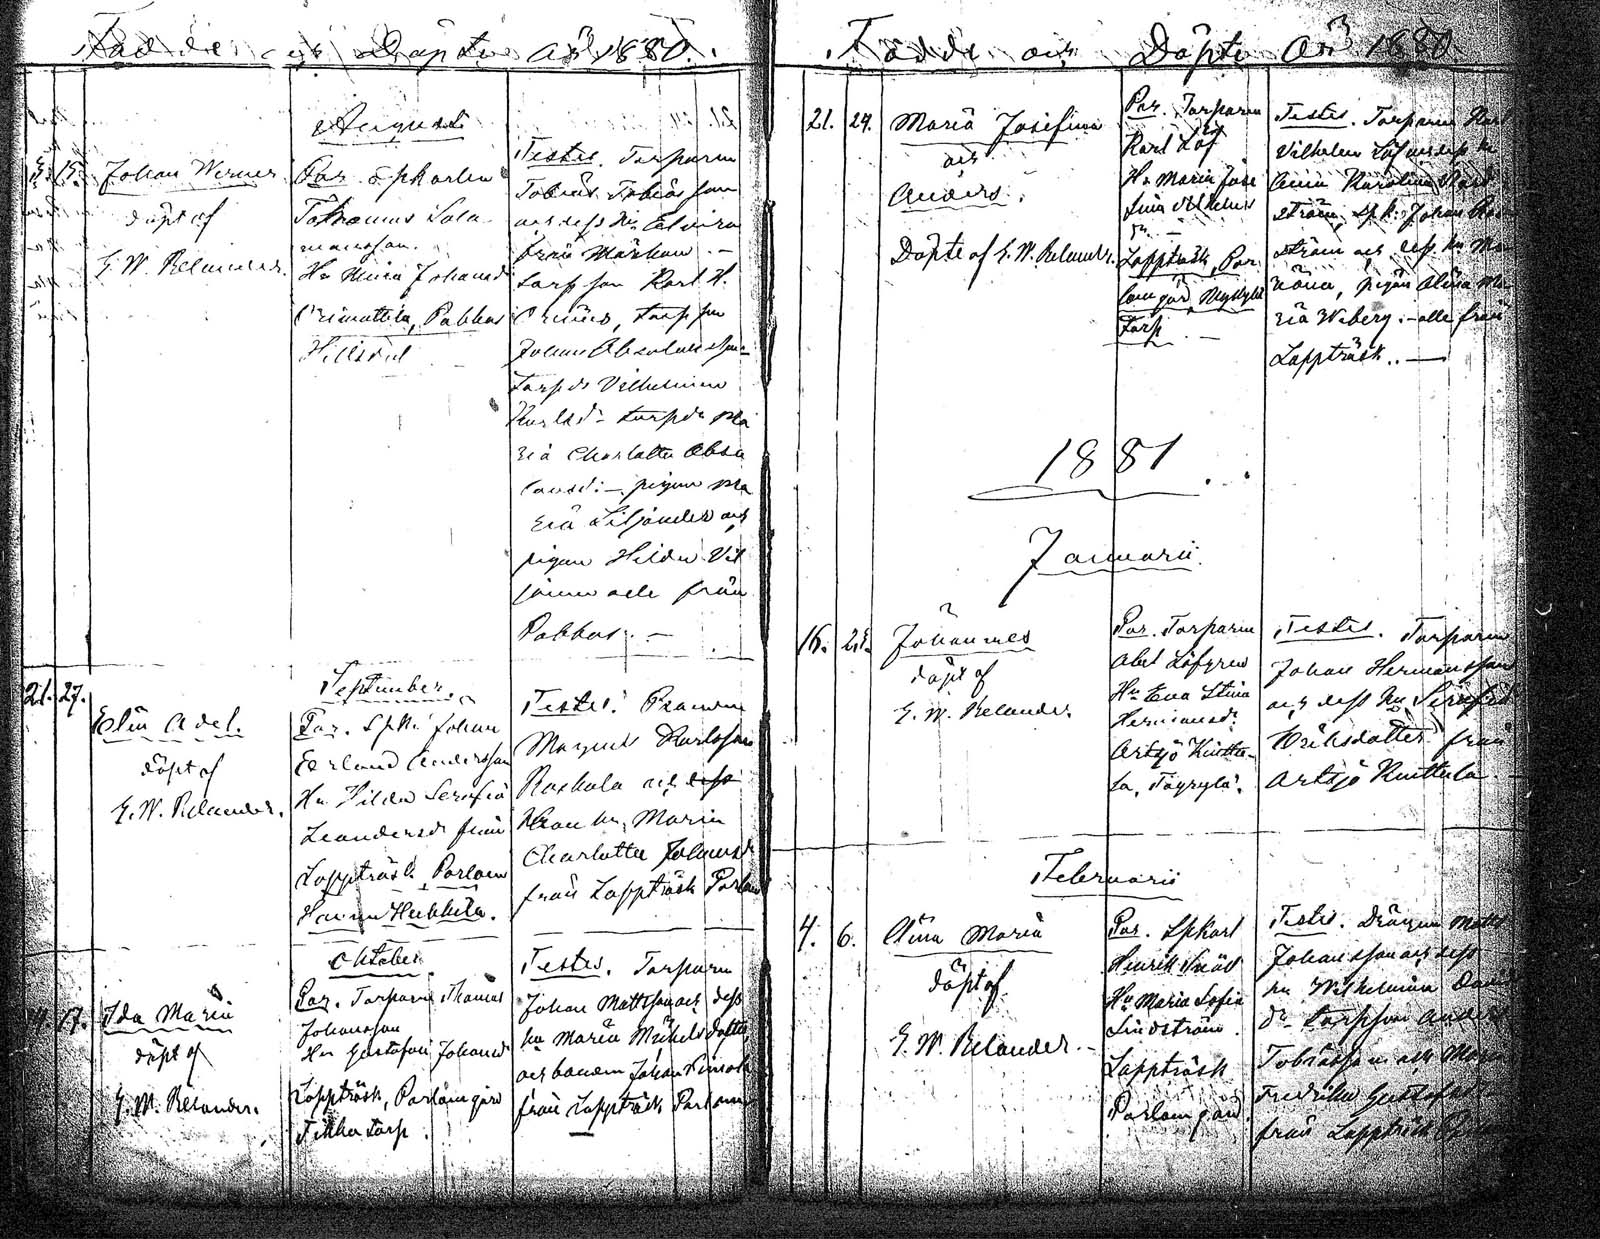 Födde och Döpte År 1880.
Augusti
15.
Johan Werner
döpt af
G. W. Relander.
Par. Spkarlen
Hu Maria Johansd
Orimattila, Pakkas
Hillsröd
Testes. Torparen
Tobias Tobiasson
och dess hu Elvira
från
Torpson Karl H.
Torpson
Johan Absalonsson
Torpds Vilhelmina
Karlsd torpds Ma
ria Charlotta Absa
lonsd. pigan Ma
ria Siljander och
pigan Hilda Vil
alle från
Pakkas. —
21. 27.
September.
Elin Adel.
döpt af
G. W. Relander.
Par. Spk. Johan
Erland Andersson
Hu Hilda Serafia
Leandersd från
Lappträsk Porlom
Hukkila.
Testes. Bonden
Magnus Karlsson
och dess
Maria
Charlotta Johansd
från Lappträsk Porlom
Oktober
17.
Ida Maria
döpt af
G. W. Relander.
Par. Torparen Thomas
Johansson
Hu Gustafva Johansd
Lappträsk, Porlom gård
torp.
Testes. Torparen
Johan Mattsson och dess
hu Maria Mickelsdotter
och bonden Johan
från Lappträsk Porlom
Födde och Döpte År 1880.
21. 24.
Maria Josefina
och
Anders.
Döpte af G. W. Relander.
Par. Torparen
Karl Löf
Hu Maria Jose
fina
Lappträsk, Por
lom gård,
Torp
Testes. Torparen Karl
Vilhelm Löf och dess hu
Anna Karolina Nord
ström, spk. Johan
ström och dess hu
pigan Alina Ma
ria Weberg. — alle från
Lappträsk. —
1881
Januarii
16. 23.
Johannes
döpt af
G. W. Relander.
Par. Torparen
Abel Löfgren
Hu Eva Stina
Hermansd.
Artsjö Kinttu-
la,
Testes. Torparen
Johan Hermansson
och dess hu Serafia
Eriksdotter från
Artsjö Kinttula
Februarii
4. 6.
Alina Maria
döpt af
G. W. Relander.
Par. Spkarl
Henrik
Hu Maria Sofia
Lindström.
Lappträsk
Porlom gård.
Testes. Drängen Matts
Johansson och dess
hu Wilhelmina Davids
dr torpson Anders
Tobiasson och Maria
Fredrika Gustafsd
från Lappträsk